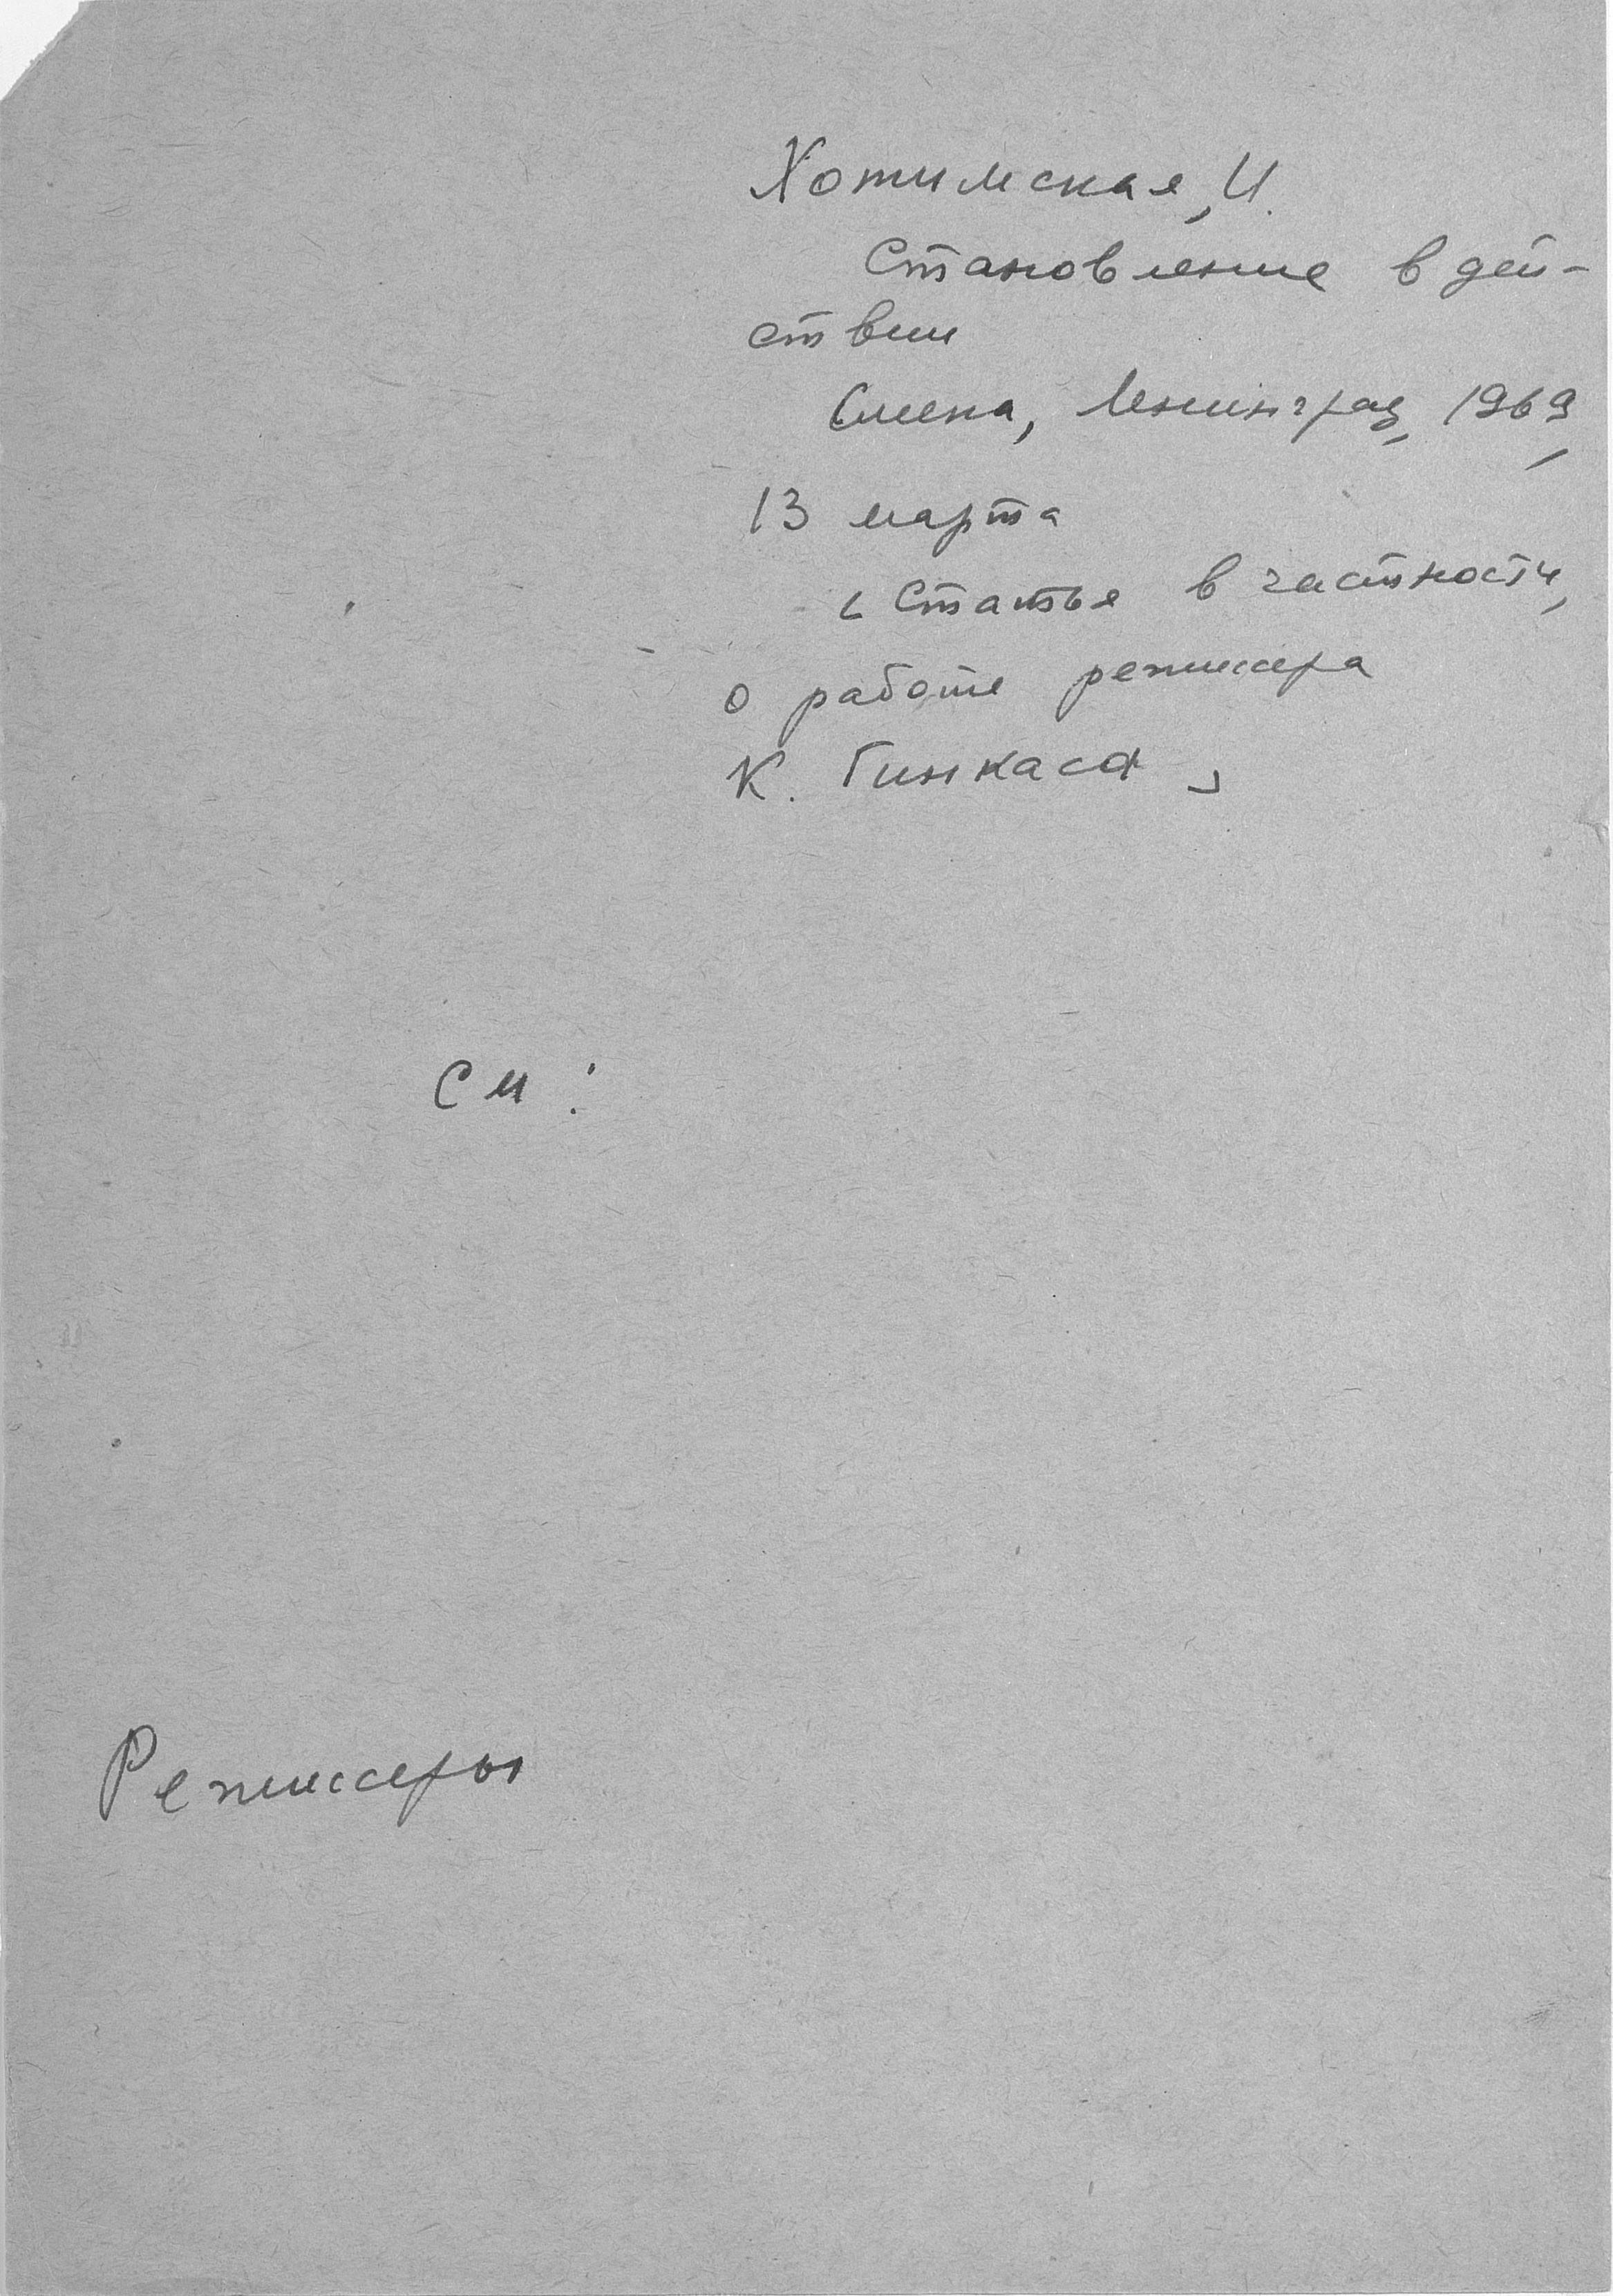 Хотимская, И.
Становление в дей-
ствии
Смена, Ленинград, 1969,
13 марта
[Статья в частности,
о работе режиссера
К. Гинкаса]
См:
Режиссеры